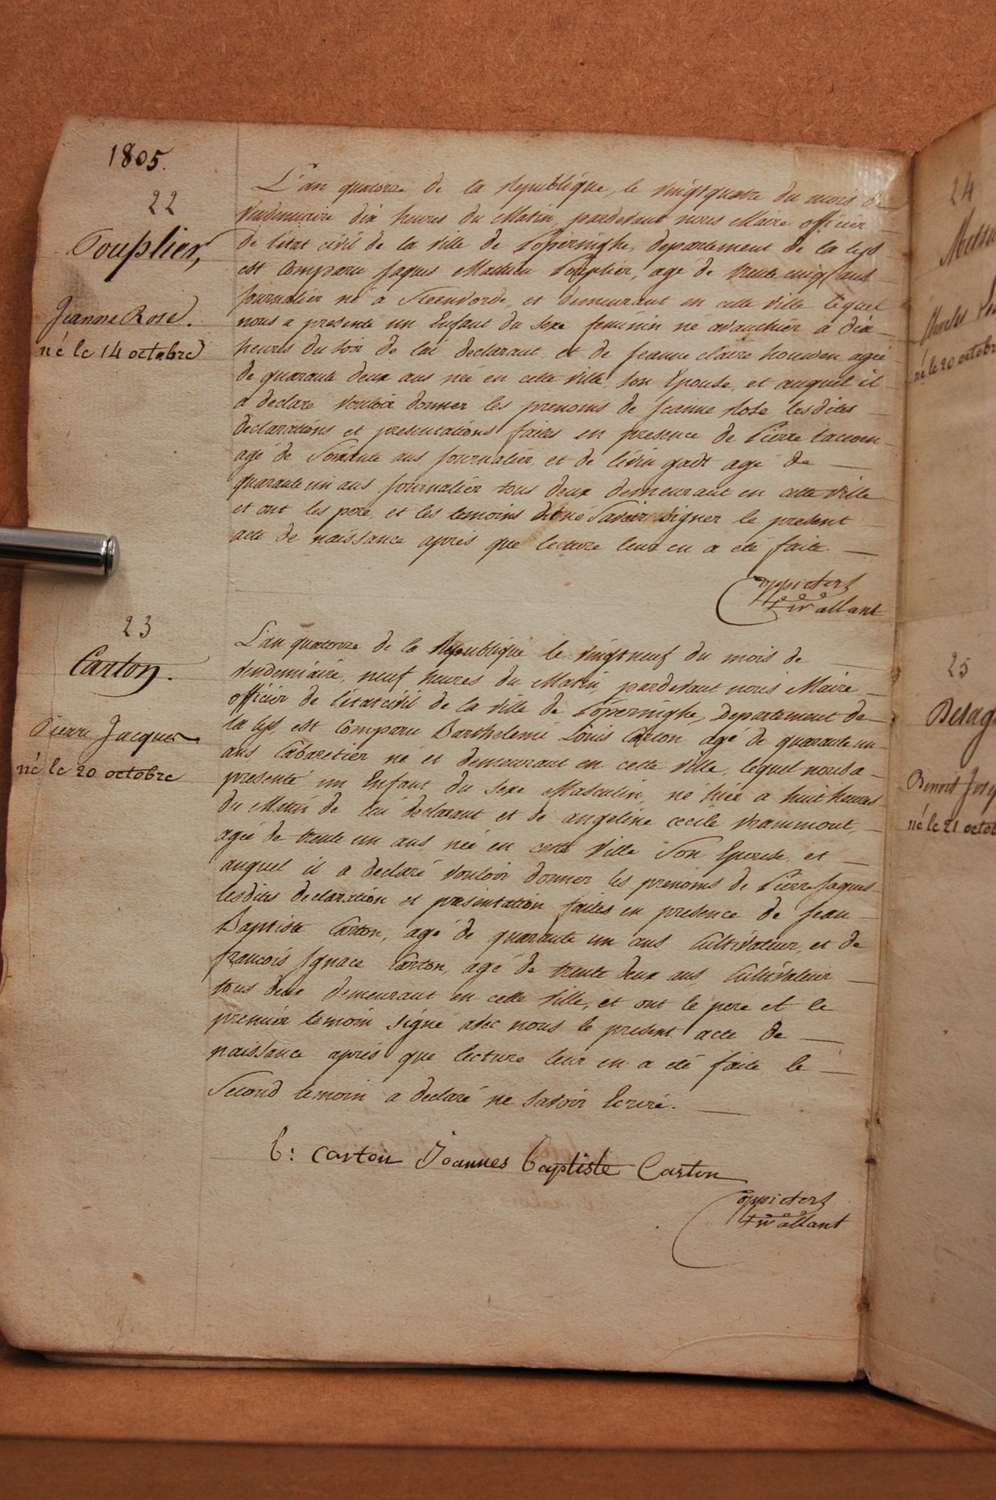 1805.
22
Toussplier,
Jeanne Rose.
né le 14 octobre
L'an quatorze de la République, le vingtquatre du mois de
vendemiaire dix heures du Matin, pardevant nous Maire officier
de l'état civil de la ville de Poperinghe, departement de la Lys
est Comparu Jaques Mathieu agé de trente cinq ans
Journalier né à Steenvorde, et demeurant en cette ville lequel
nous a presenté un Enfant du sexe feminin né avanthier à dix
heures du soir de lui declarant et de jeanne claire houwen agée
de quarante deux ans née en cette ville son Epouse, et auquel il
a declaré vouloir donner les prenoms de Jeanne Rose lesdites
declarations et présentations faites en presence de Pierre
agé de Soixante ans Journalier et de livin gadt agé de
quarante un ans journalier tous deux demeurant en cette ville
et ont les pere et les temoins dit né Savoir signer le present
acte de naissance apres que lecture leur en a été faite
23
Carton.
Pierre Jacques
né le 20 octobre
L'an quatorze de la Republique le vingtneuf du mois de
vendemiaire, neuf heures du Matin, pardevant nous Maire
officier de l'état civil de la ville de Poperinghe, Departement de
la Lys, est Comparu Barthelemi Louis Carton agé de quarante un
ans Cabaretier né et demeurant en cette ville, lequel nous a
presenté un Enfant du sexe Masculin, né hier a huit heures
du Matin de lui declarant et de angeline cecile
agée de trente un ans née en cette ville Son Epouse, et
auquel il a declaré vouloir donner les prenoms de Pierre Jaques
lesdites declaration et presentation faites en presence de jean
Baptiste Carton, agé de quarante un ans Cultivateur, et de
françois Ignace Carton, agé de trente deux ans Cultivateur
tous deux demeurant en cette ville, et ont le pere et le
premier temoin signé avec nous le present acte de
naissance aprés que lecture leur en a été faite le
Second temoin a declaré ne savoir Ecrire.
b: carton Joannes baptiste Carton
24
Charles
né le 20 octobre
25
Benoit
né le 21 octob